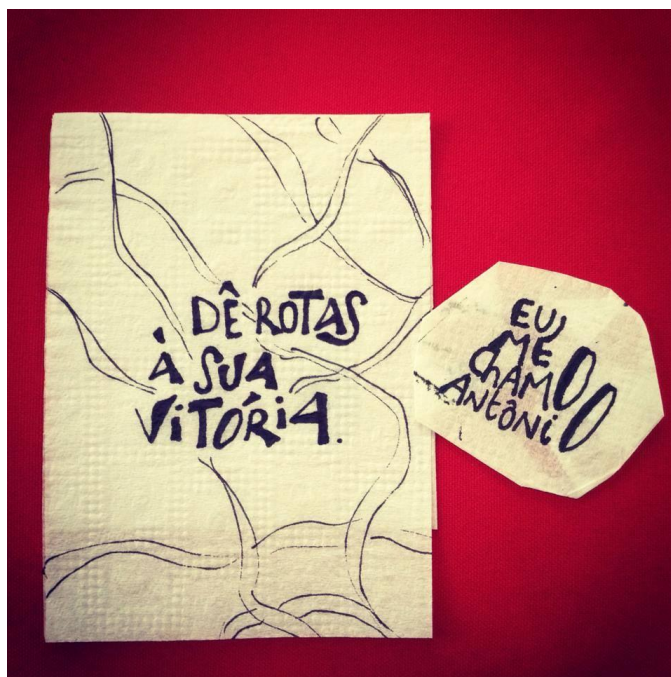 DÊ ROTAS
À SUA
VITÓRiA.
EU
ME
ChAMO
ANTÔNiO